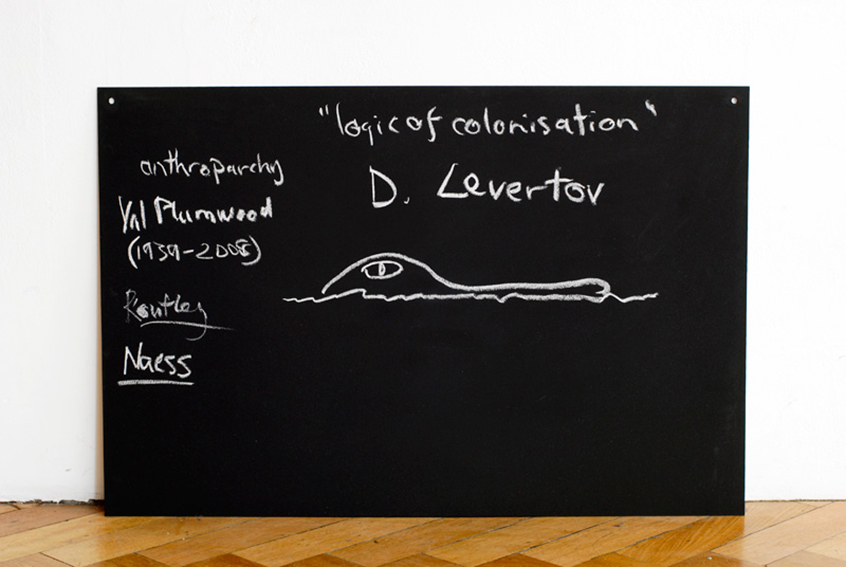 "logic of colonisation"
D. Levertov
anthroparchy
Val Plumwood
(1939-2008)
Routley
Naess